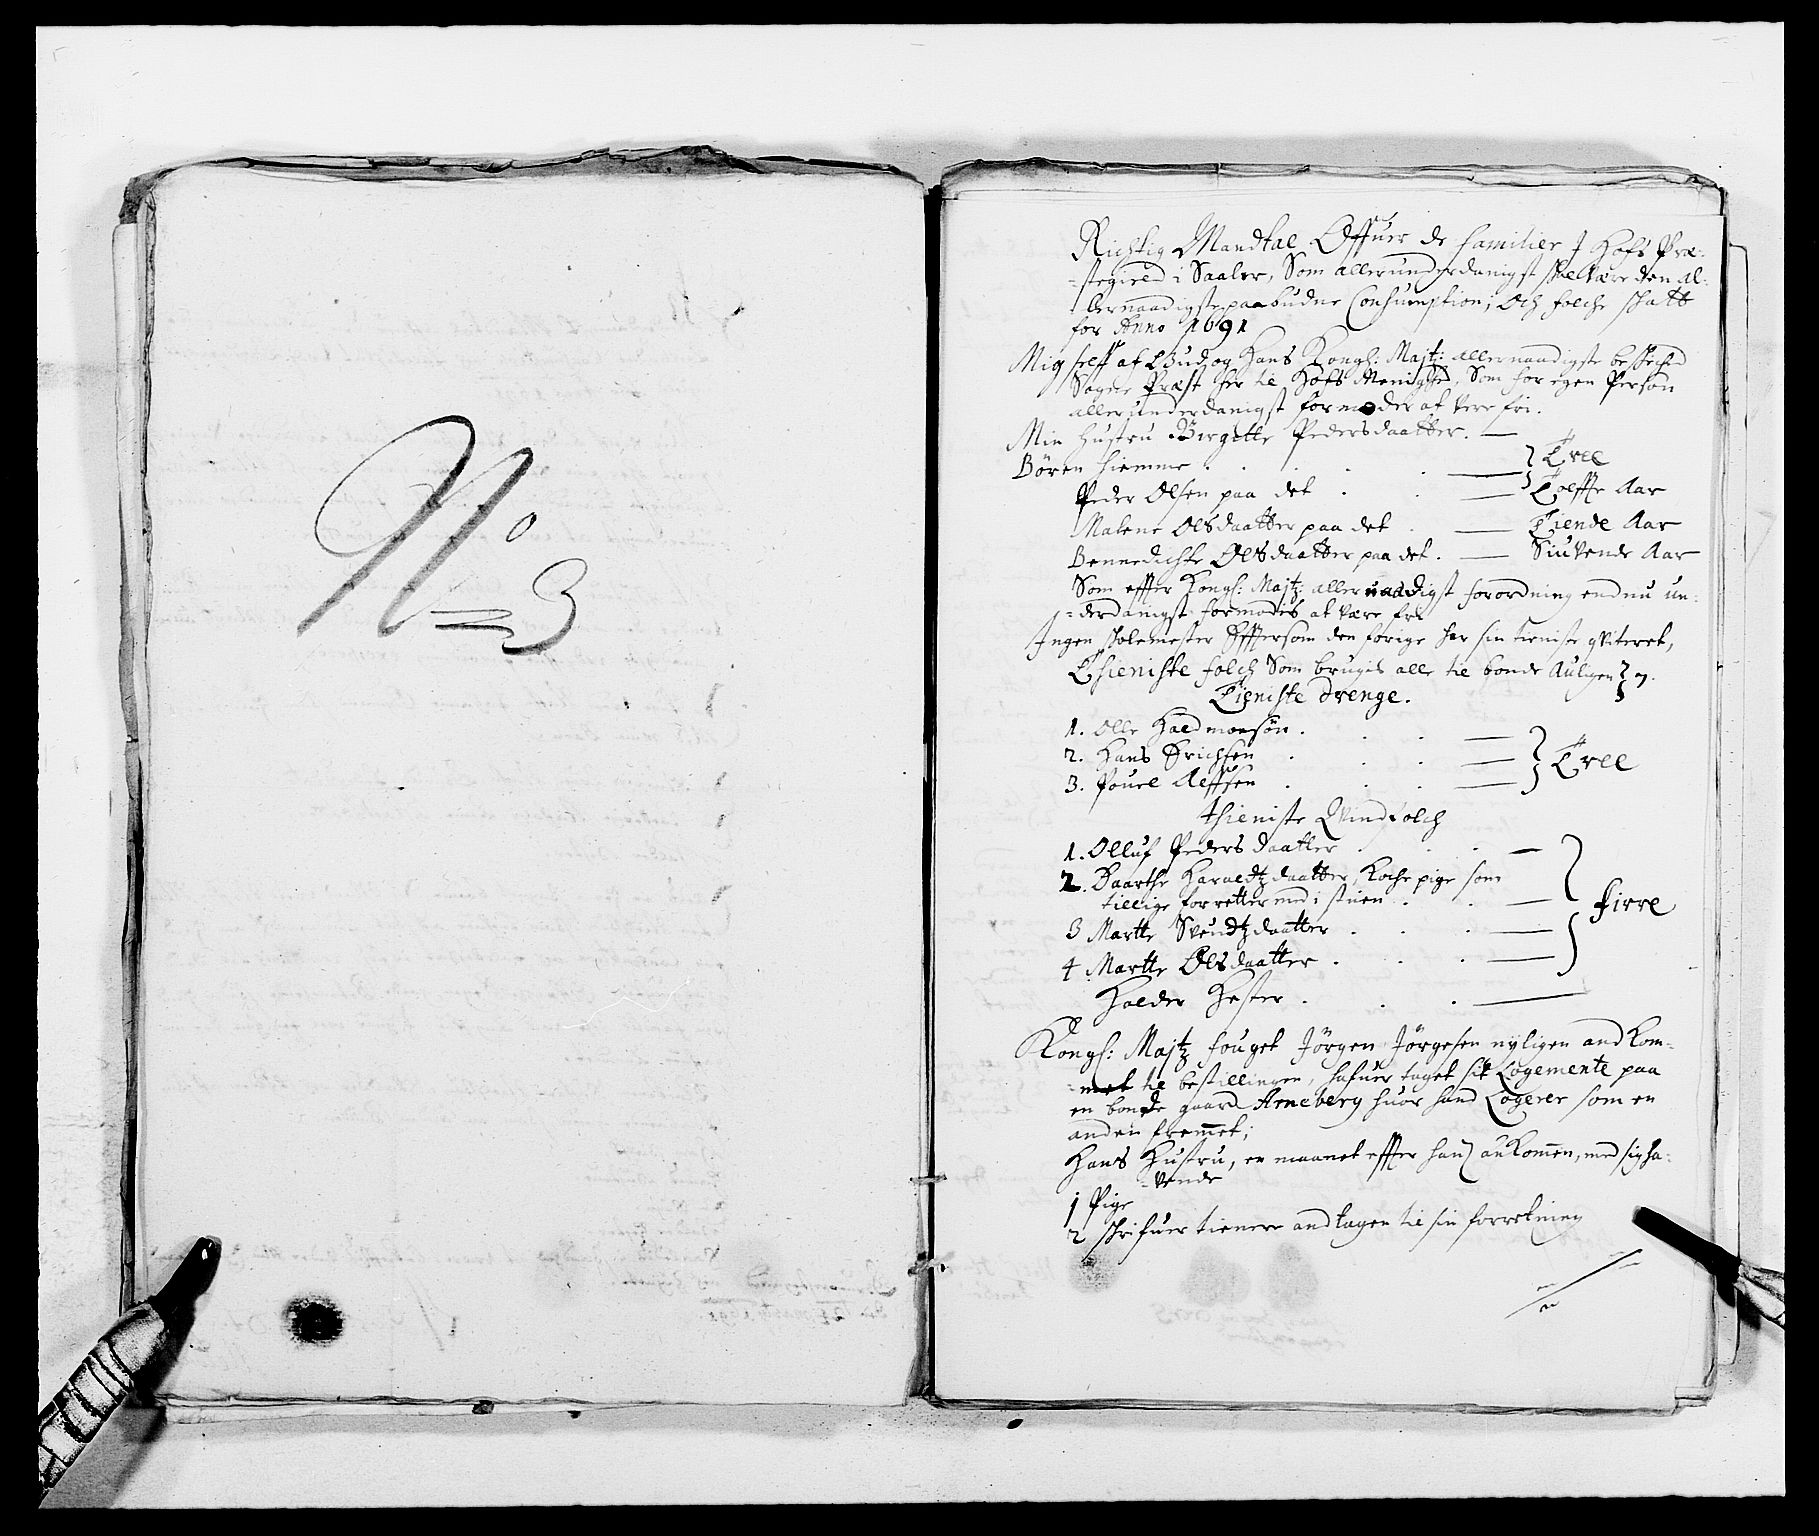 No 3
Richtig Mandtal Offuer de familier J Hofs Præ-
-stegield i Saaler, Som allerunderdanigst skal være den al-
lernaadigste paabudne Consumption, Och folche skatt
for Anno 1691
Mig self af Gud og Hans Kongl: Majtz: allernaadigste beskiched
Sogne Præst her til Hofs Menighed, Som for egen Person
allerunderdanigst formoder at vere fri.
Min Hustru Birgitte Pedersdaatter. —
Børen hiemme . . . . . — } Tree
Peder Olsen paa det . . — Tolffte Aar
Malene Olsdaatter paa det . — Tiende Aar
Bennedichte Olsdaatter paa det . — Siuvende Aar
Som effter Kongl: Majtz: allernaadigst forordning endnu un-
-derdanigst formodes at være fri
Ingen skolemester Efftersom den forige har sin tieniste qviteret,
Thieniste folch Som brugis alle til bonde Aulingen } 7.
Tieniste drenge.
1. Olle Haldmonsøn . . . —
2. Hans Erichsen . . — } Tree
3. Pouel Alffsen . . . —
thieniste Qvindfolch
1. Olluf Peders daatter . . . —
2. Baarthe Haraldtz daatter, Koche pige som
tillige forretter med i stuen . . — } firre
3 Martte Svendtz daatter . . . —
4 Martte Olsdaatter . . . —
Holder Hester . . . —
Kongl: Majtz fouget Jørgen Jørgesen nyligen and Kom-
-met til bestillingen, hafuer taget sit Logemente paa
en bonde gaard Arneberg huor hand Logerer som en
anden fremmet;
Hans Hustru, en maanet effter hans ankomen, med sig ha-
-vende
1 Pige
2 skrifuer tienere andtagen til sin forretning